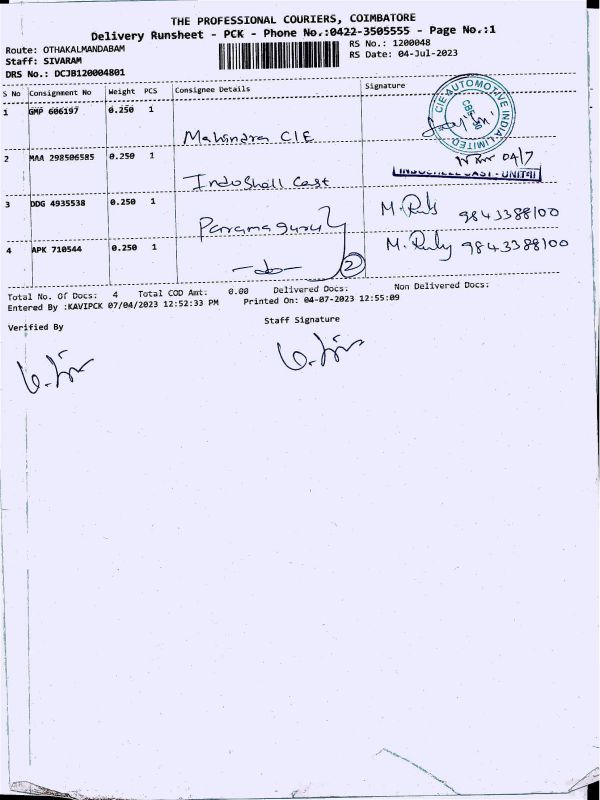 THE PROFESSIONAL COURIERS, COIMBATORE
Delivery Runsheet - PCK - Phone No.:0422-3505555 - Page No.:1
Route: OTHAKALMANDABAM
RS No.: 1200048
Staff: SIVARAM
RS Date: 04-Jul-2023
DRS No.: DCJB120004801
S No Consignment No Weight PCS Consignee Details Signature
1 GMP 606197 0.250 1 Mahindra CIE
CIE AUTOMOTIVE INDIA LIMITED
CBE
2 MAA 298506585 0.250 1 IndoShell Cast 04/7
INDOSHELL CAST - UNIT-II
3 DDG 4935538 0.250 1 Paramaguru M. 9843388100
4 APK 710544 0.250 1 -do- 2 M. 9843388100
Total No. Of Docs: 4 Total COD Amt: 0.00 Delivered Docs: Non Delivered Docs:
Entered By :KAVIPCK 07/04/2023 12:52:33 PM Printed On: 04-07-2023 12:55:09
Verified By Staff Signature